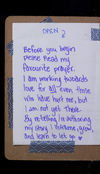 OPEN 2
Before you begin
please Read my
favourite prayer.
I am working towards
love for all even those
who have hurt me, but
I am not yet there.
By retelling / authoring
my story I restore, grow,
and learn to let go